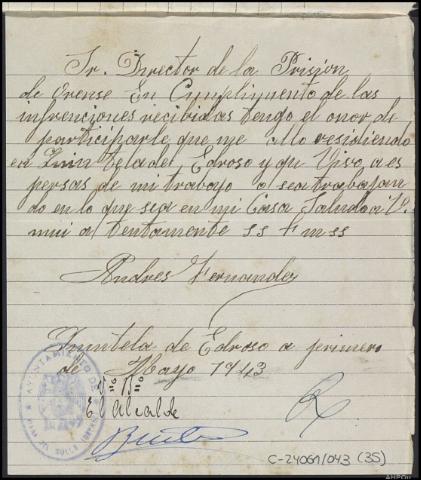 Sr. Director de la Prisión
de Orense En Cumplimento de las
infrenciones recibidas tengo el onor de
participarle que me allo residiendo
en Quintela de Edroso y que Vivo a es
persas de mi trabajo o sea trabajan
do en lo que sea en mi Casa Saludo a Vd.
mui atentamente ss
Andres Fernandez
Quintela de Edroso a primero
de Mayo 1943
Vº Bº
El Alcalde
AYUNTAMIENTO DE
C-24061/043 (3S)
AHPOu